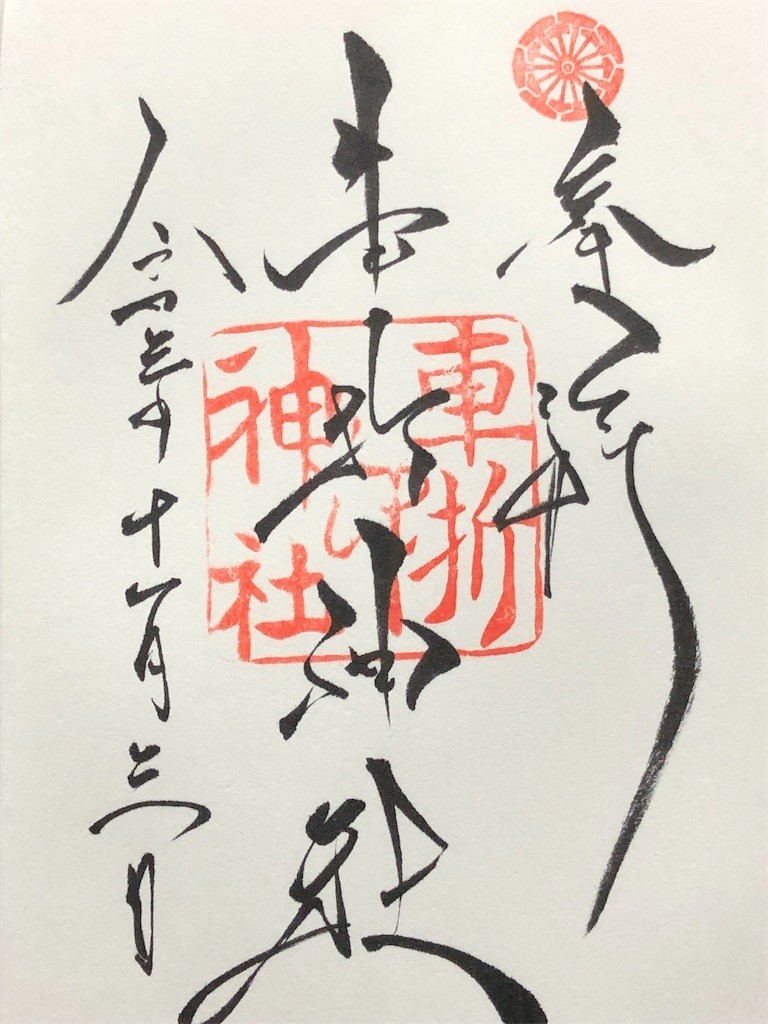 奉拝
車折神社
令和三年十一月 日
車折
神社